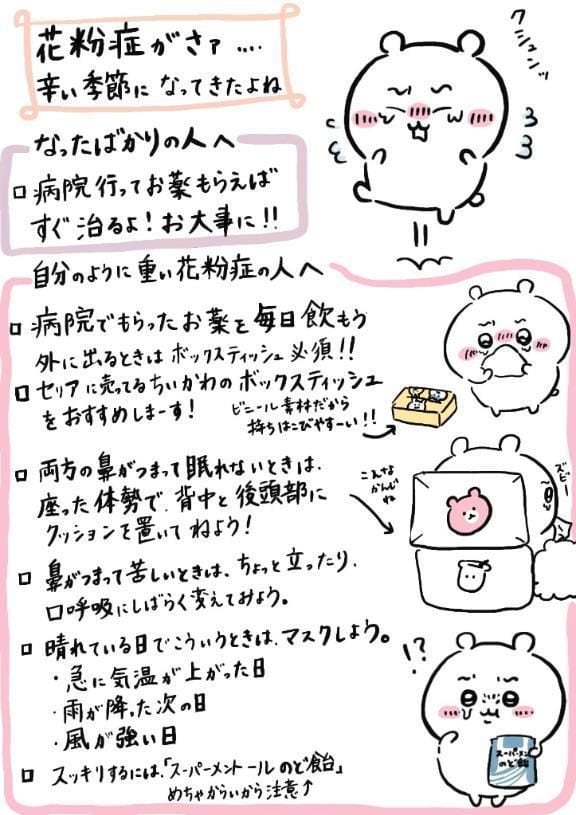 花粉症がさァ....
辛い季節になってきたよね
クシュンッ
なったばかりの人へ
□ 病院行ってお薬もらえば
すぐ治るよ！お大事に!!
自分のように重い花粉症の人へ
□ 病院でもらったお薬を毎日飲もう
外に出るときはボックスティッシュ必須!!
□ セリアに売ってるちいかわのボックスティッシュ
をおすすめしまーす！
ビニール素材だから
持ちはこびやすーい!!
□ 両方の鼻がつまって眠れないときは、
座った体勢で、背中と後頭部に
クッションを置いてねよう！
こんな
かんじ
ね
ズビー
□ 鼻がつまって苦しいときは、ちょっと立ったり、
口呼吸にしばらく変えてみよう。
□ 晴れている日でこういうときは、マスクしよう。
・急に気温が上がった日
・雨が降った次の日
・風が強い日
!?
スーパーメン
のど飴
□ スッキリするには、「スーパーメントールのど飴」
めちゃからいから注意↑